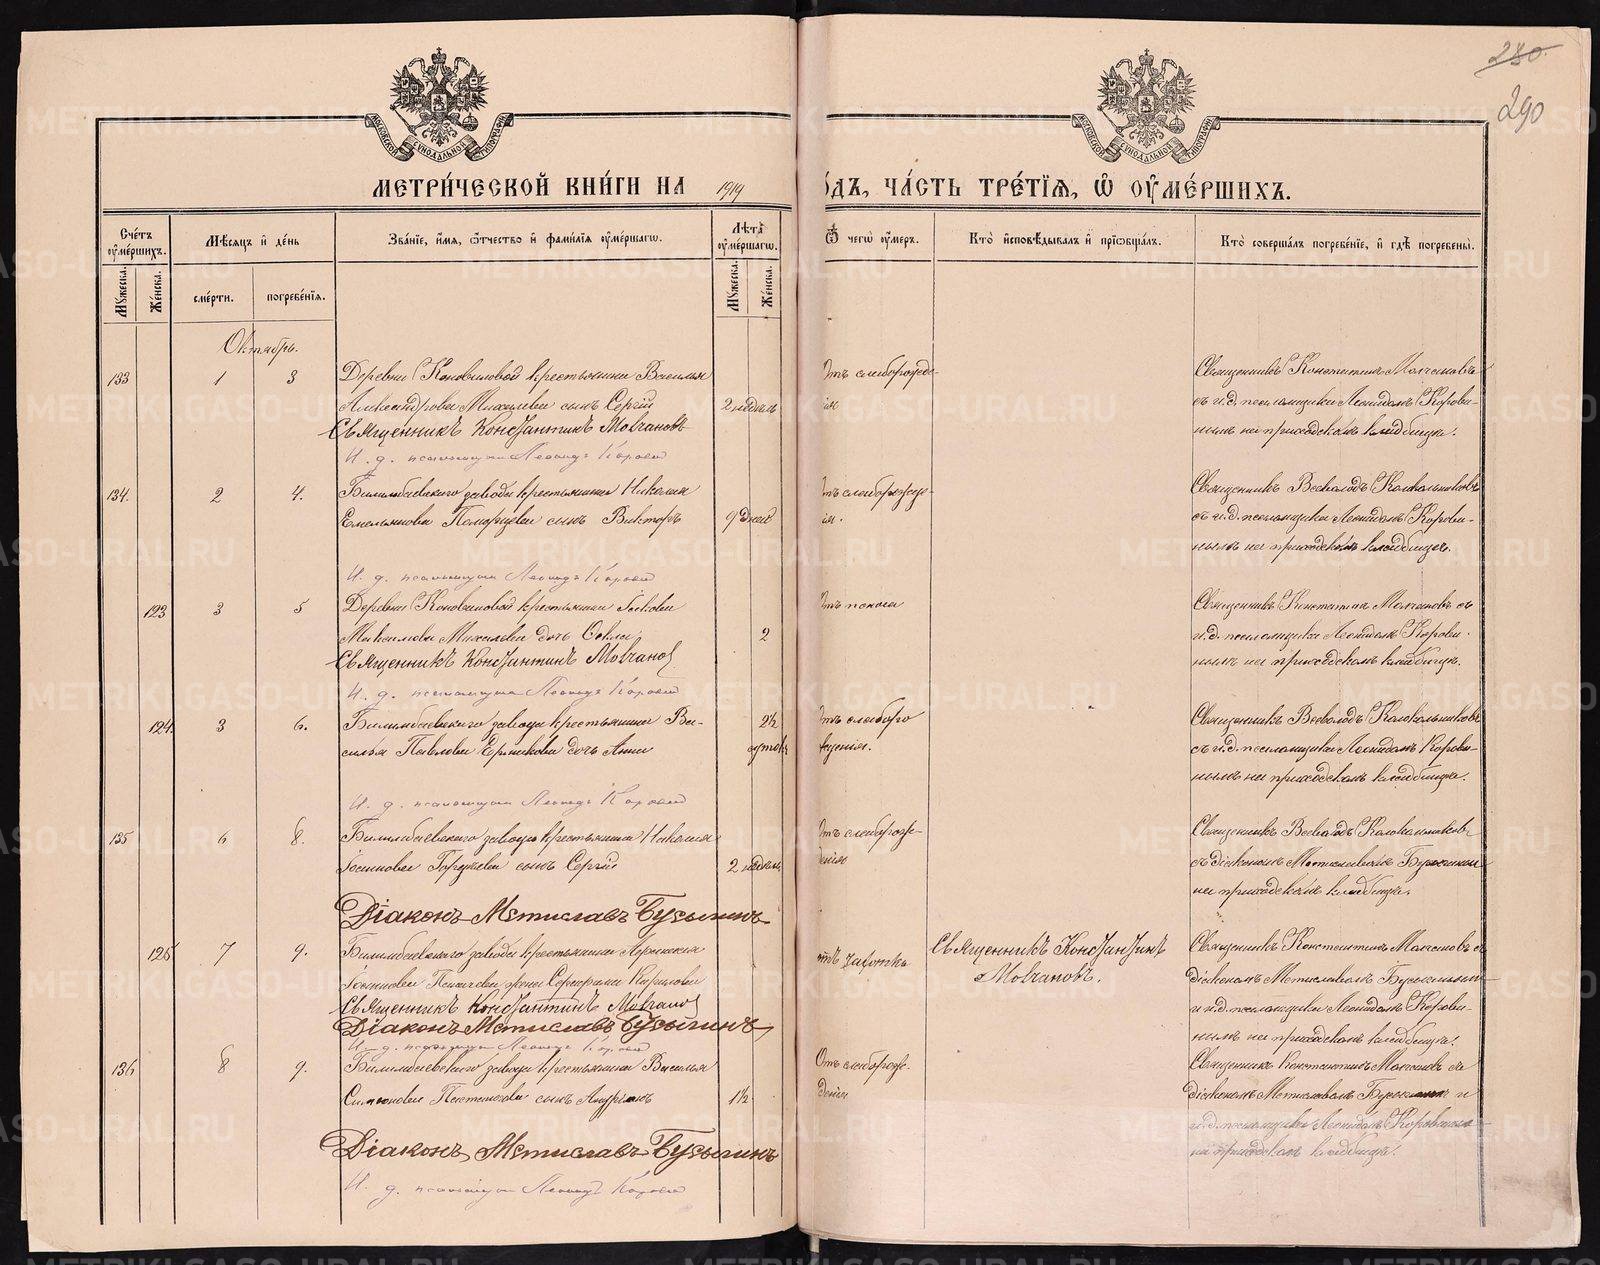 280.
290
МОСКОВСКОЙ СѴНОДАЛЬНОЙ ТИПОГРАФІИ
МОСКОВСКОЙ СѴНОДАЛЬНОЙ ТИПОГРАФІИ
МЕТРИ́ЧЕСКОЙ КНИ́ГИ НА 1919
ѺДЪ, ЧА́СТЬ ТРЕ́ТІѦ, Ѽ ОУМЕ́РШИХЪ.
Сче́тъ оумершихъ.
Мужеска. Же́нска.
Мѣсяцъ и де́нь
сме́рти. погребе́нїѧ.
Зва́нїе, и́мѧ, ѻтчество и фамилїѧ оуме́ршагѡ.
Лѣта оуме́ршагѡ.
Мужеска. Же́нска.
Ѿ чегѡ оумеръ.
Кто исповѣдывалъ и прїобщалъ.
Кто соверша́лъ погребе́нїе, и гдѣ погребены.
Октябрь.
133 1 3 Деревни Коновловой крестьянина Василья
Александрова Михалева сынъ Сергій 2 недѣль
Священникъ Константинъ Молчановъ
И. д. псаломщика Леонидъ Коровин
Отъ слаборожде-
ія
Священникъ Константинъ Молчановъ
съ и.д. псаломщика Леонидомъ Корови-
нымъ на приходскомъ кладбищѣ.
134. 2 4. Билимбаевскаго завода крестьянина Николая
Емельянова Поморцева сынъ Викторъ 9 дней
И. д. псаломщика Леонидъ Коровин
ія.
Священникъ Всеволодъ Колокольниковъ
съ и.д. псаломщика Леонидомъ Корови-
нымъ на приходскомъ кладбищѣ.
123 3 5 Деревни Коноваловой крестьянина Іакова
Максимова Михалева дочь 2
Священникъ Константинъ Молчанов
И. д. псаломщика Леонидъ Коровин
Отъ поноса
Священникъ Константинъ Молчановъ съ
и.д. псаломщика Леонидомъ Корови-
нымъ на приходскомъ кладбищѣ.
124. 3 6. Билимбаевскаго завода крестьянина Ва- 2½
силья Павлова Ермакова дочь Анна сутокъ
И. д. псаломщика Леонидъ Коровин
Отъ слаборо
жденія.
Священникъ Всеволодъ Колокольниковъ
съ и.д. псаломщика Леонидомъ Корови-
нымъ на приходскомъ кладбищѣ.
135 6 8. Билимбаевскаго завода крестьянина Николая
сынъ Сергій 2 недѣль
Діаконъ Мстиславъ Бусыгинъ
Отъ слаборож-
денія
Священникъ Всеволодъ Колокольниковъ
съ діакономъ Мстиславомъ Бусыгин
на приходскомъ кладбищѣ.
125 7 9. Билимбаевскаго завода крестьянина
жена Серафима Кирилова
Священникъ Константинъ Молчанов
Діаконъ Мстиславъ Бусыгинъ
И. д. псаломщика Леонидъ Коровин
отъ чахотки
Священникъ Константинъ
Молчановъ.
Священникъ Константинъ Молчановъ съ
діакономъ Мстиславомъ Бусыгинымъ
и и.д. псаломщика Леонидомъ Корови-
нымъ на приходскомъ кладбищѣ.
136 8 9. Билимбаевскаго завода крестьянина Василья
сынъ 1½
Діаконъ Мстиславъ Бусыгинъ
И. д. псаломщика Леонидъ Коровин
Отъ слаборож-
денія
Священникъ Константинъ Молчановъ съ
діакономъ Мстиславомъ Бусыгин и
и.д. псаломщика Леонидомъ Коровиным
на приходскомъ кладбищѣ.
METRIKI.GASO-URAL.RU